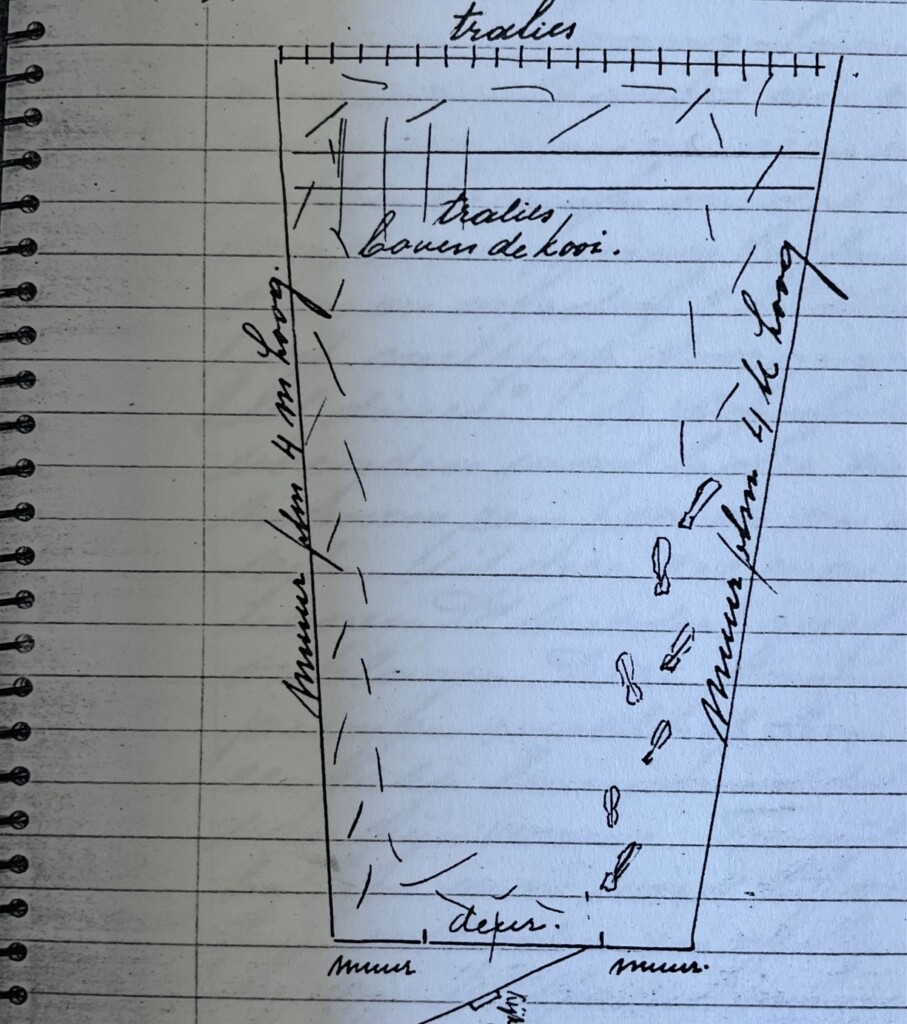 tralies
tralies
boven de kooi.
muur plm 4 m hoog.
muur plm 4 M hoog
deur.
muur
muur.